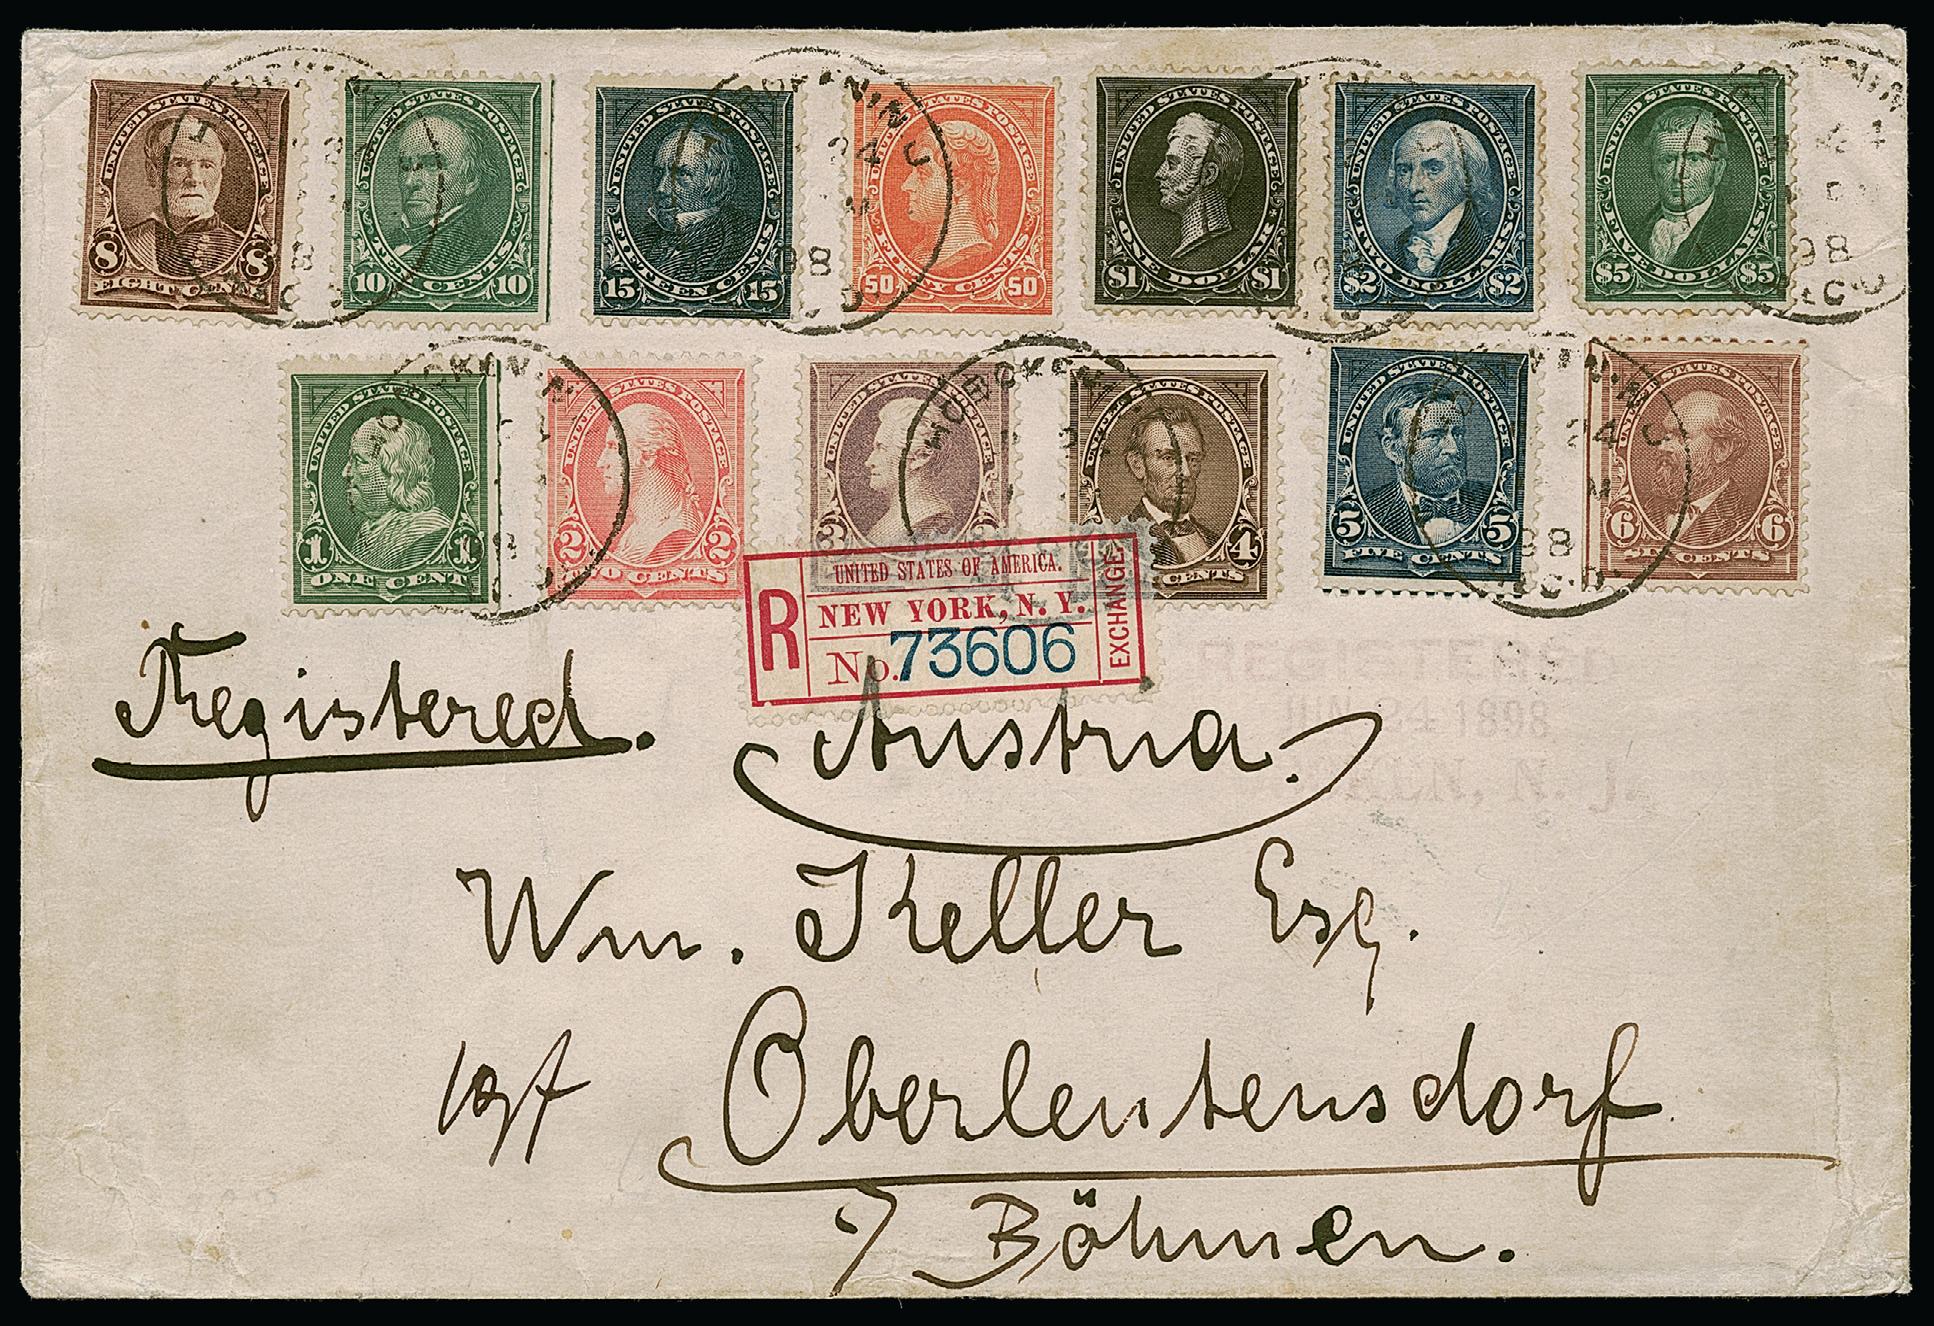 UNITED STATES POSTAGE
8 8
EIGHT CENTS
UNITED STATES POSTAGE
10 TEN CENTS 10
UNITED STATES POSTAGE
15 FIFTEEN CENTS 15
UNITED STATES POSTAGE
50 CENTS 50
UNITED STATES POSTAGE
$1 ONE DOLLAR $1
UNITED STATES POSTAGE
$2 TWO DOLLARS $2
UNITED STATES POSTAGE
$5 FIVE DOLLARS $5
98
98
UNITED STATES POSTAGE
1 1
ONE CENT
UNITED STATES POSTAGE
2 2
TWO CENTS
3
UNITED STATES POSTAGE
4
CENTS
UNITED STATES POSTAGE
5 5
FIVE CENTS
UNITED STATES POSTAGE
6 6
SIX CENTS
HOBOKEN
R
UNITED STATES OF AMERICA.
NEW YORK, N. Y.
No. 73606
EXCHANGE
REGISTERED
JUN 24 1898
N. J.
Registered.
Austria.
Wm. Keller Esq.
Oberleutensdorf
Böhmen.